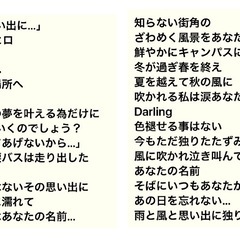 い出に...」
ヒロ
場所へ
の夢を叶える為だけに
いくのでしょう？
てあげないから...」
バスは走り出した
はないその思い出に
に濡れて
はあなたの名前...
知らない街角の
ざわめく風景をあなた
鮮やかにキャンバスに
冬が過ぎ春を終え
夏を越えて秋の風に
吹かれる私は涙あなた
Darling
色褪せる事はない
今もただ独りたたずみ
風に吹かれ泣き叫んて
あなたの名前
そばにいつもあなたか
あの日を忘れない...
雨と風と思い出に独り